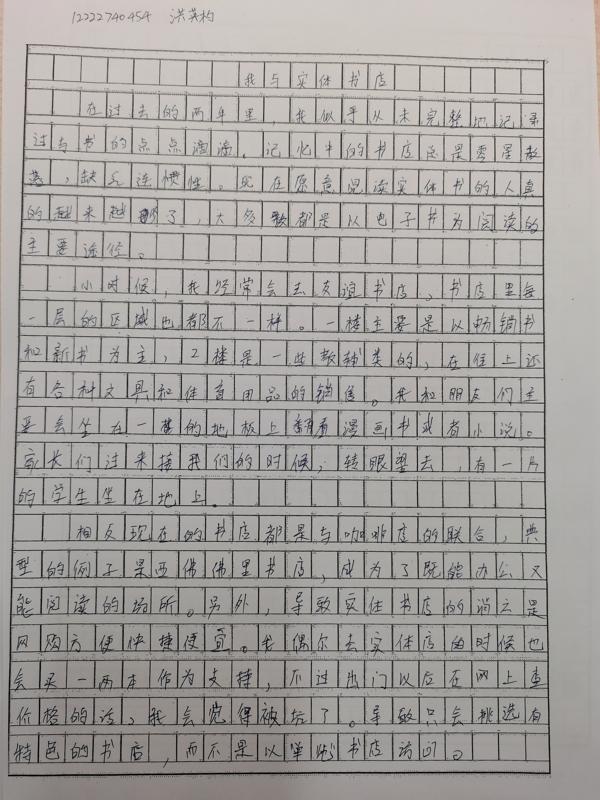 12222740454 洪英构
我与实体书店
在过去的两年里，我似乎从未完整地记录
过与书的点点滴滴。记忆中的书店总是零星散
落，缺乏连惯性。现在愿意阅读实体书的人真
的越来越少了，大多数都是以电子书为阅读的
主要途径。
小时候，我经常会去友谊书店，书店里每
一层的区域也都不一样。一楼主要是以畅销书
和新书为主，2楼是一些教辅类的，在往上还
有各种文具和体育用品的销售。我和朋友们主
要会坐在一楼的地板上翻看漫画书或者小说。
家长们过来接我们的时候，转眼望去，有一片
的学生坐在地上。
相反现在的书店都是与咖啡店的联合，典
型的例子是西佛佛里书店，成为了既能办公又
能阅读的场所。另外，导致实体书店的消亡是
网购方便快捷便宜。我偶尔去实体店的时候也
会买一两本作为支持，不过出门以后在网上查
价格的话，我会觉得被坑了。导致只会挑选有
特色的书店，而不是以单纯书店访问。